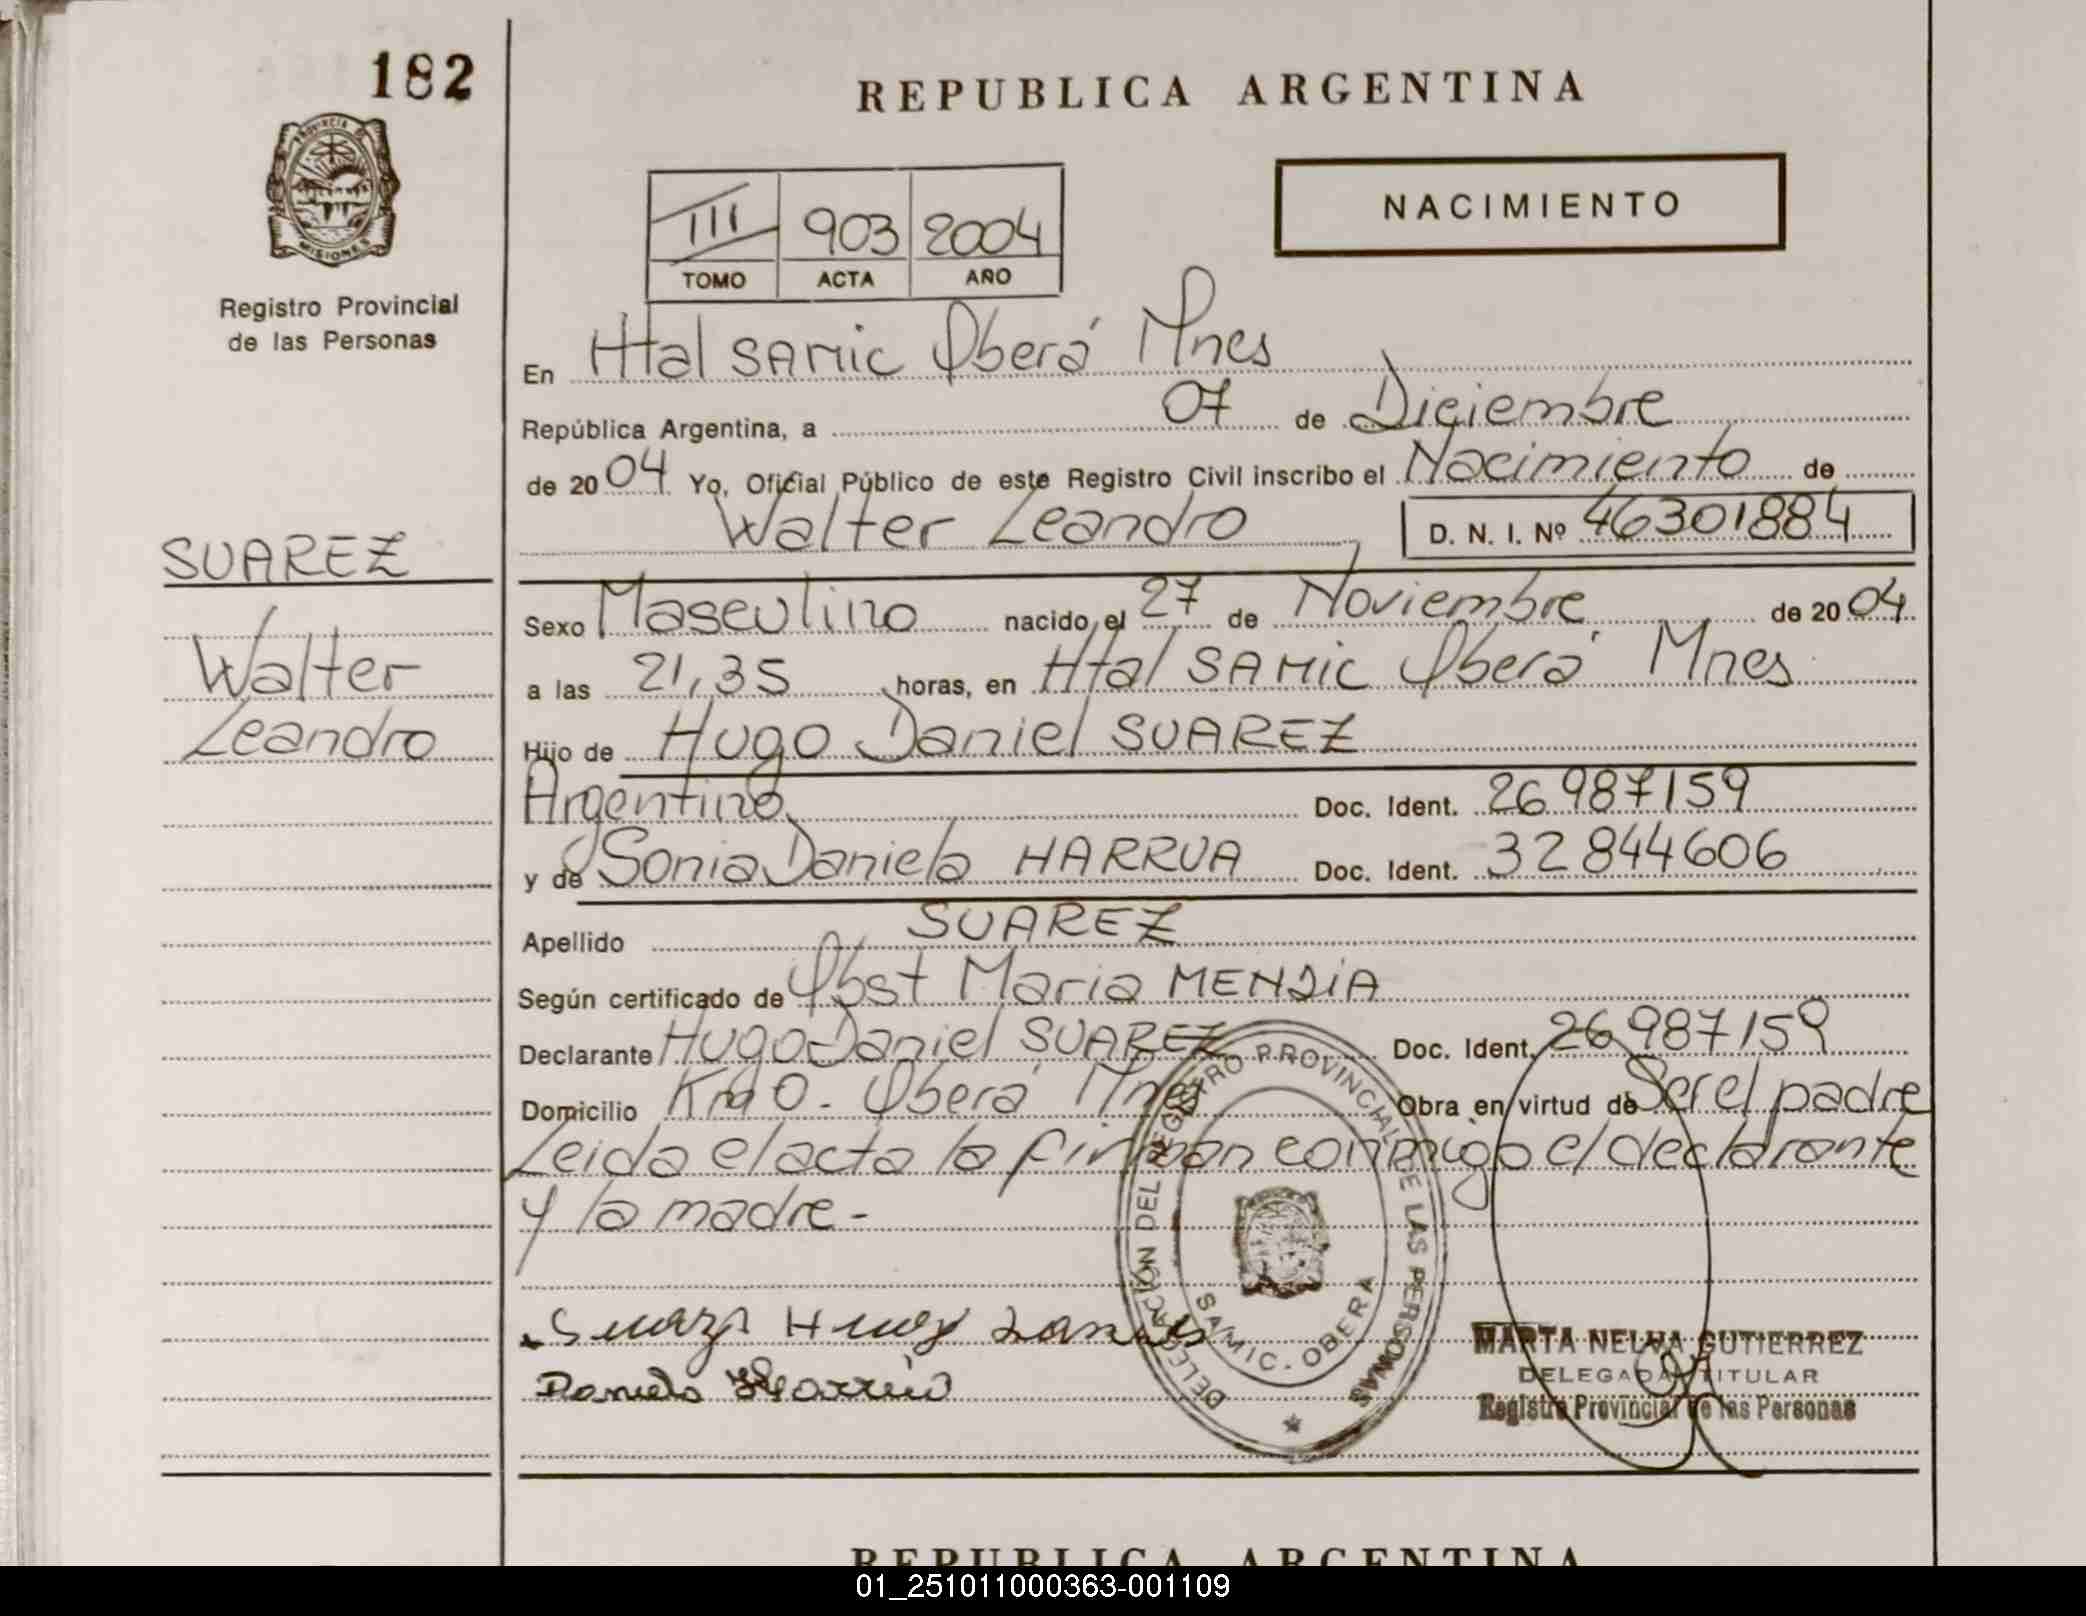 182
REPUBLICA ARGENTINA
PROVINCIA DE MISIONES
Registro Provincial
de las Personas
III 903 2004
TOMO ACTA AÑO
NACIMIENTO
En Htal SAMIC Oberá Mnes
República Argentina, a 07 de Diciembre
de 2004 Yo, Oficial Público de este Registro Civil inscribo el Nacimiento de
Walter Leandro D. N. I. Nº 46301884
SUAREZ
Walter
Leandro
Sexo Masculino nacido el 27 de Noviembre de 2004
a las 21,35 horas, en Htal SAMIC Oberá Mnes
Hijo de Hugo Daniel SUAREZ
Argentino Doc. Ident. 26987159
y de Sonia Daniela HARRUA Doc. Ident. 32844606
Apellido SUAREZ
Según certificado de Obst Maria MENDIA
Declarante Hugo Daniel SUAREZ Doc. Ident. 26987159
Domicilio Km 0 - Oberá Mnes Obra en virtud de Ser el padre
Leida el acta la firman conmigo el declarante
y la madre -
DELEGACIÓN DEL REGISTRO PROVINCIAL DE LAS PERSONAS
SAMIC - OBERA
Suarez Hugo Daniel
Daniela
MARTA NELVA GUTIERREZ
DELEGADA TITULAR
Registro Provincial de las Personas
REPUBLICA ARGENTINA
01_251011000363-001109